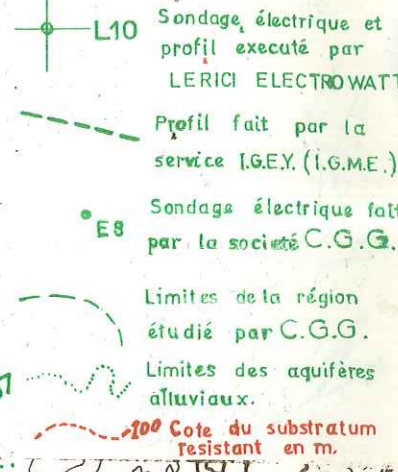 L10 Sondage électrique et
profil executé par
LERICI ELECTROWATT
Profil fait par la
service I.G.E.Y. (I.G.M.E.)
E8 Sondage électrique fait
par la societé C.G.G.
Limites de la région
étudié par C.G.G.
Limites des aquifères
alluviaux.
100 Cote du substratum
resistant en m.